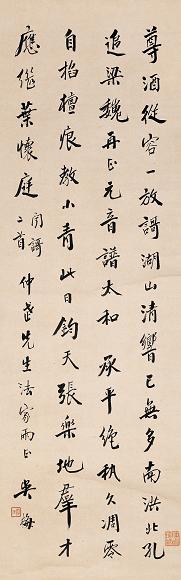 尊酒從容一放謌湖山清響已無多南洪北孔
追梁魏再正元音譜太和承平絕埶久凋零
自掐檀痕教小青此日鈞天張樂地羣才
應繼葉懷庭聞謌二首仲先生法家雨正吳梅